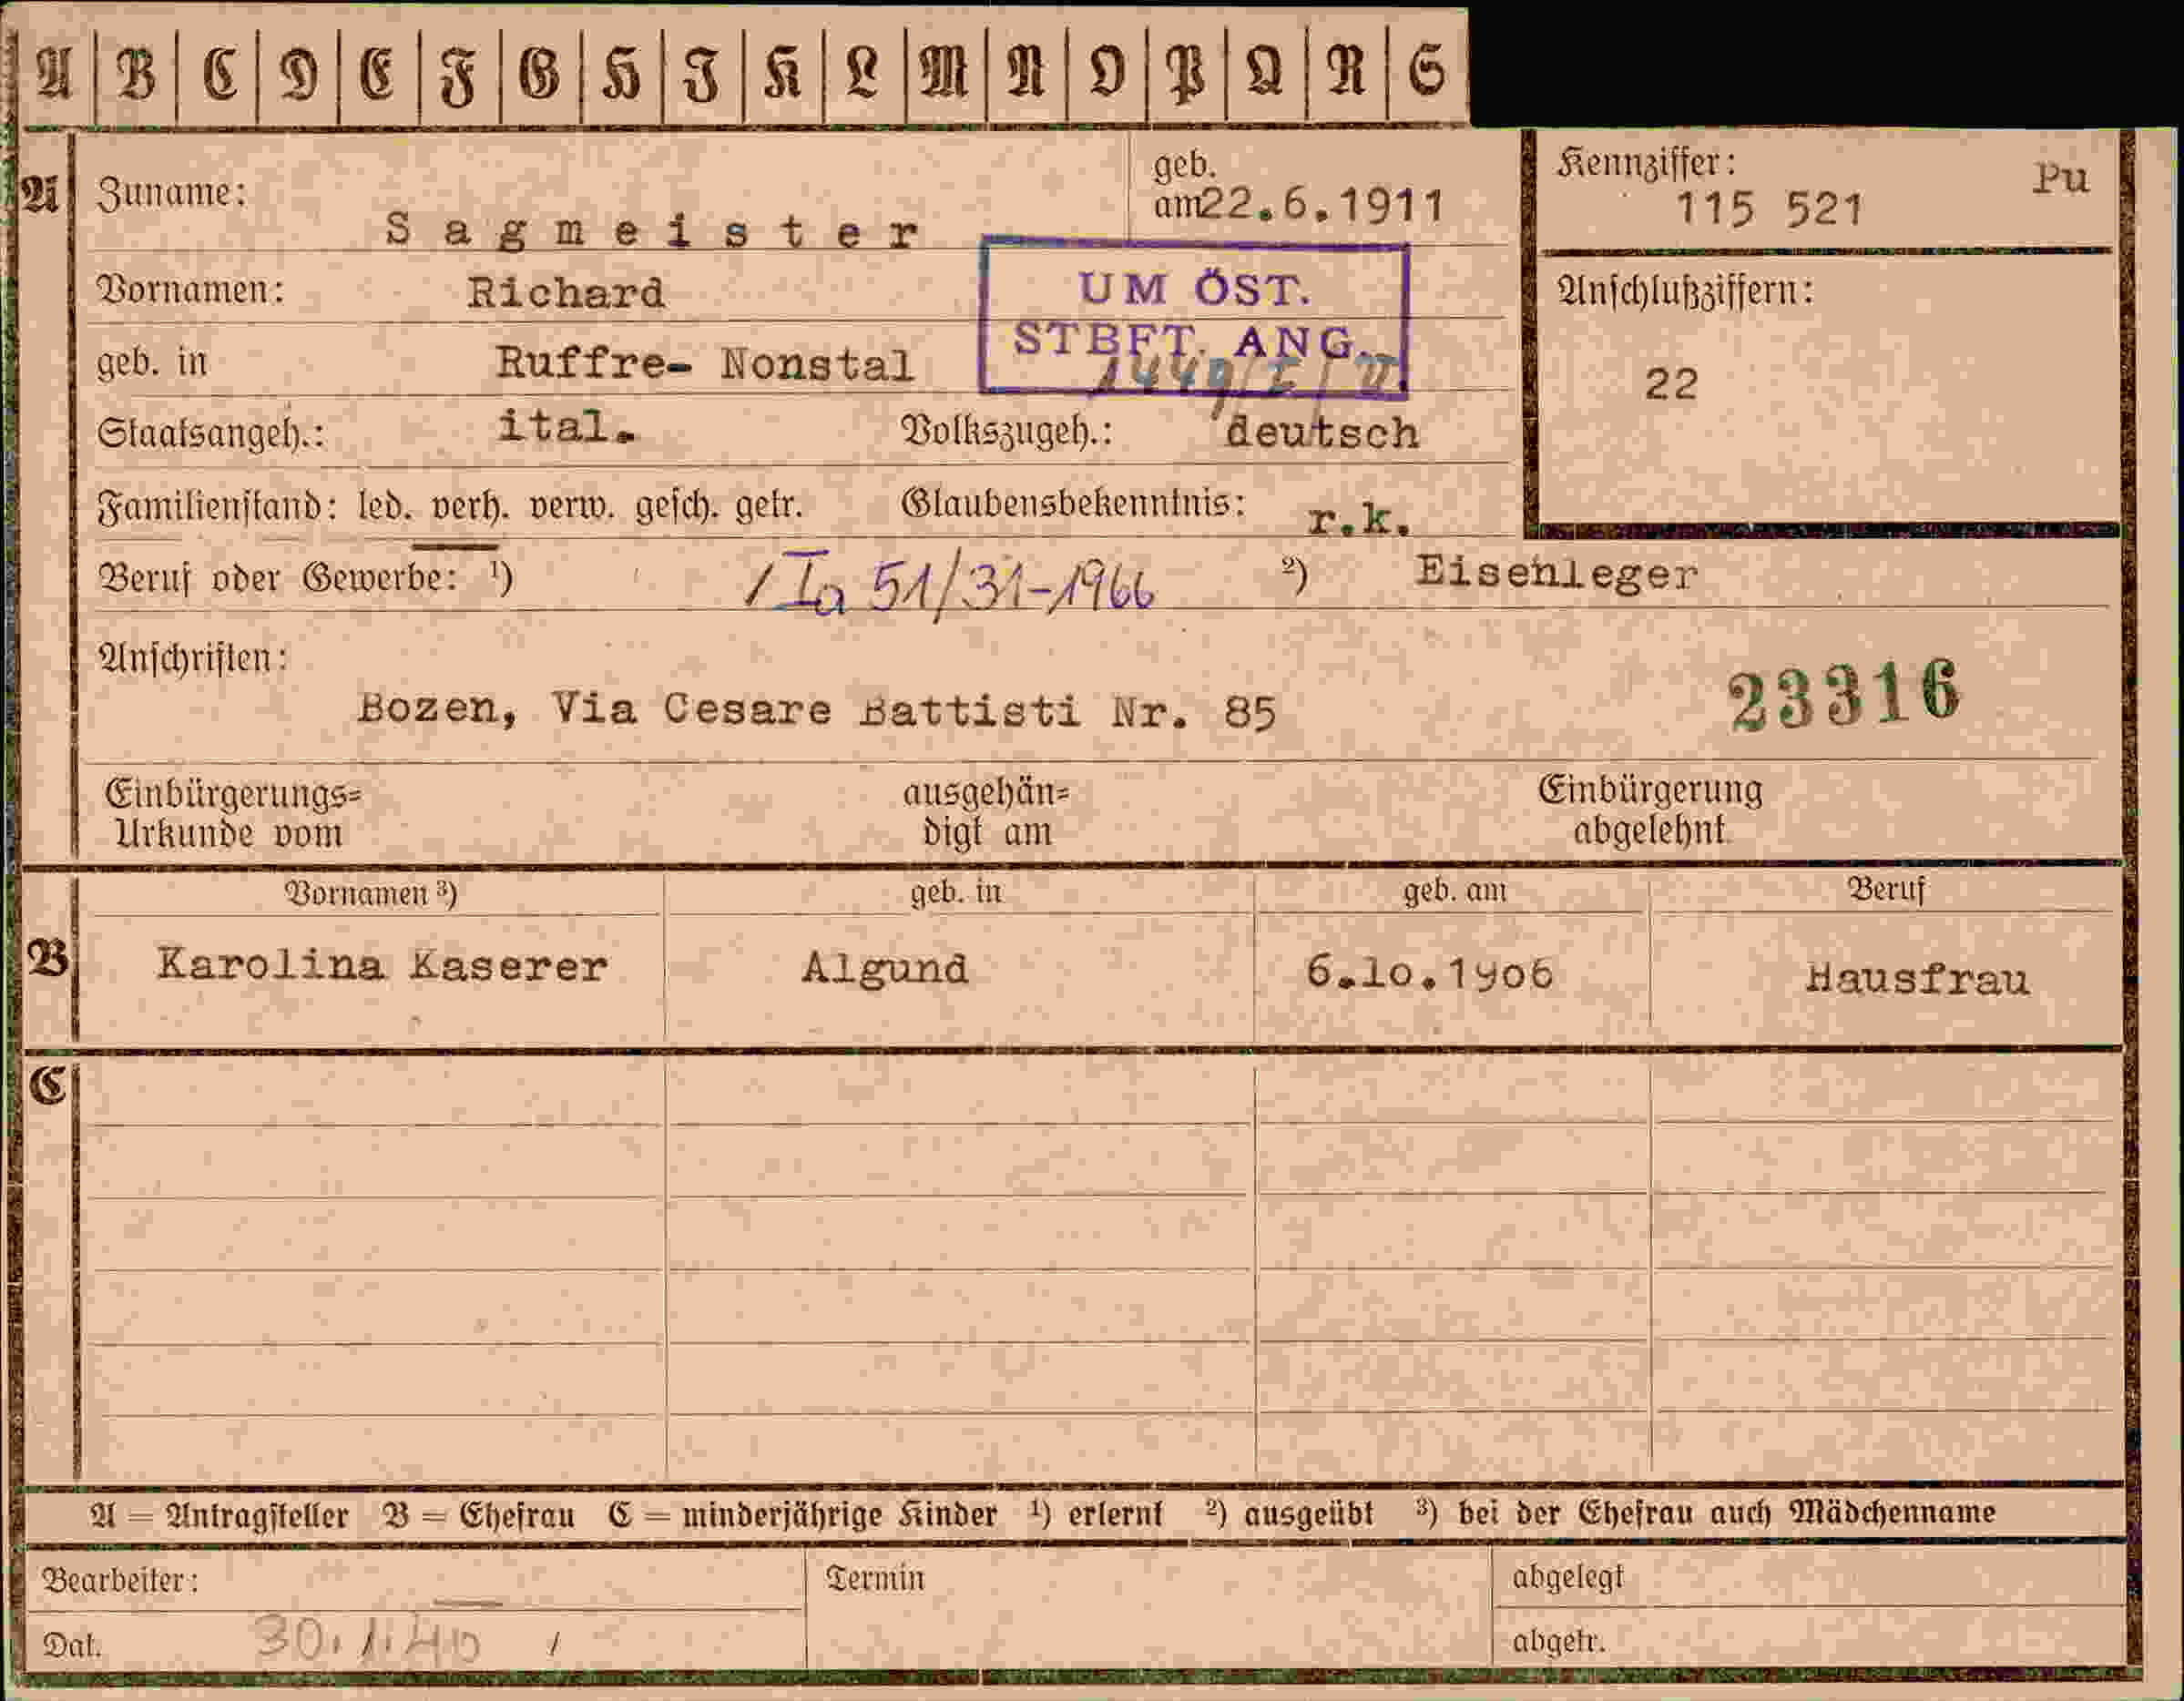 A B C D E F G H I K L M N O P Q R S
A Zuname: Sagmeister geb. am 22.6.1911 Kennziffer: 115 521 Pu
Vornamen: Richard UM ÖST. Anschlußziffern:
geb. in Ruffre- Nonstal STBFT. ANG. 22
Staatsangeh.: ital. Volkszugeh.: deutsch
Familienstand: led. verh. verw. gesch. getr. Glaubensbekenntnis: r.k.
Beruf oder Gewerbe: ¹) / Ia 51/31-1966 ²) Eisenleger
Anschriften:
Bozen, Via Cesare Battisti Nr. 85 23316
Einbürgerungs= ausgehän= Einbürgerung
Urkunde vom digt am abgelehnt
Vornamen ³) geb. in geb. am Beruf
B Karolina Kaserer Algund 6.10.1906 Hausfrau
C
A = Antragsteller B = Ehefrau C = minderjährige Kinder ¹) erlernt ²) ausgeübt ³) bei der Ehefrau auch Mädchenname
Bearbeiter: Termin abgelegt
Dat. 30.1.40 / abgetr.